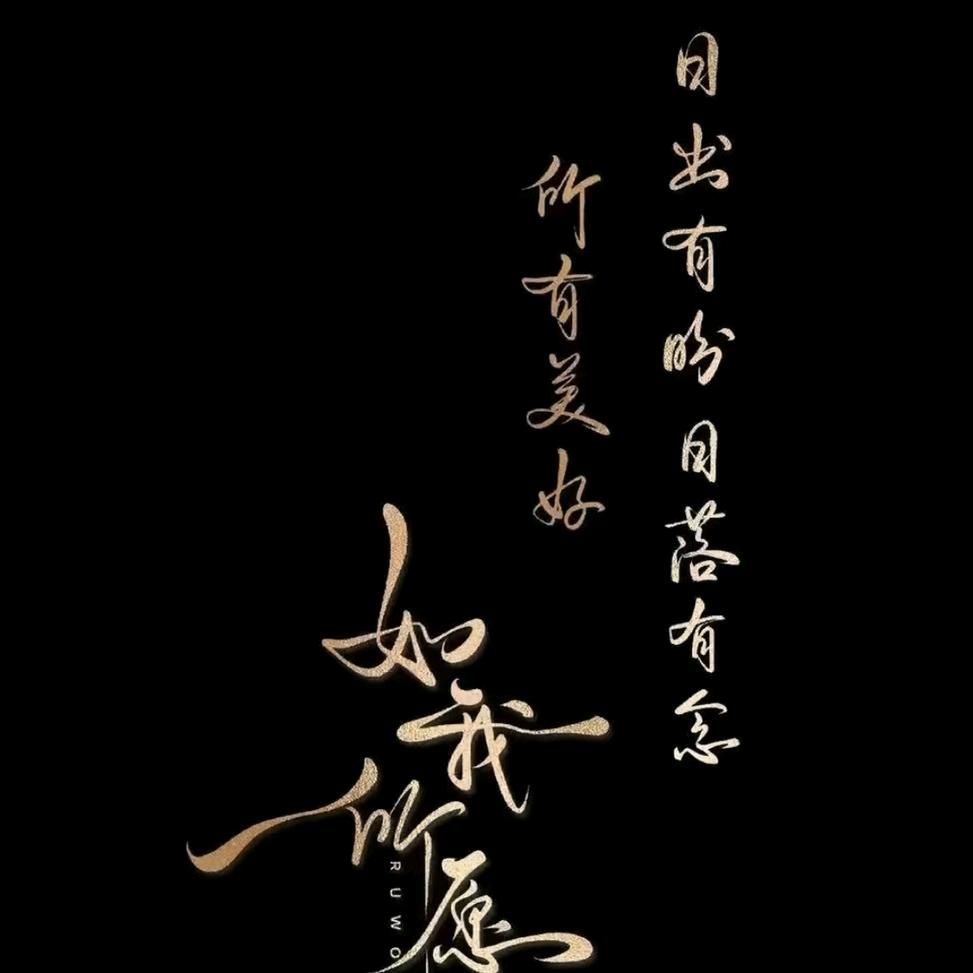 日出有盼日落有念
所有美好
如我所愿
RUWO